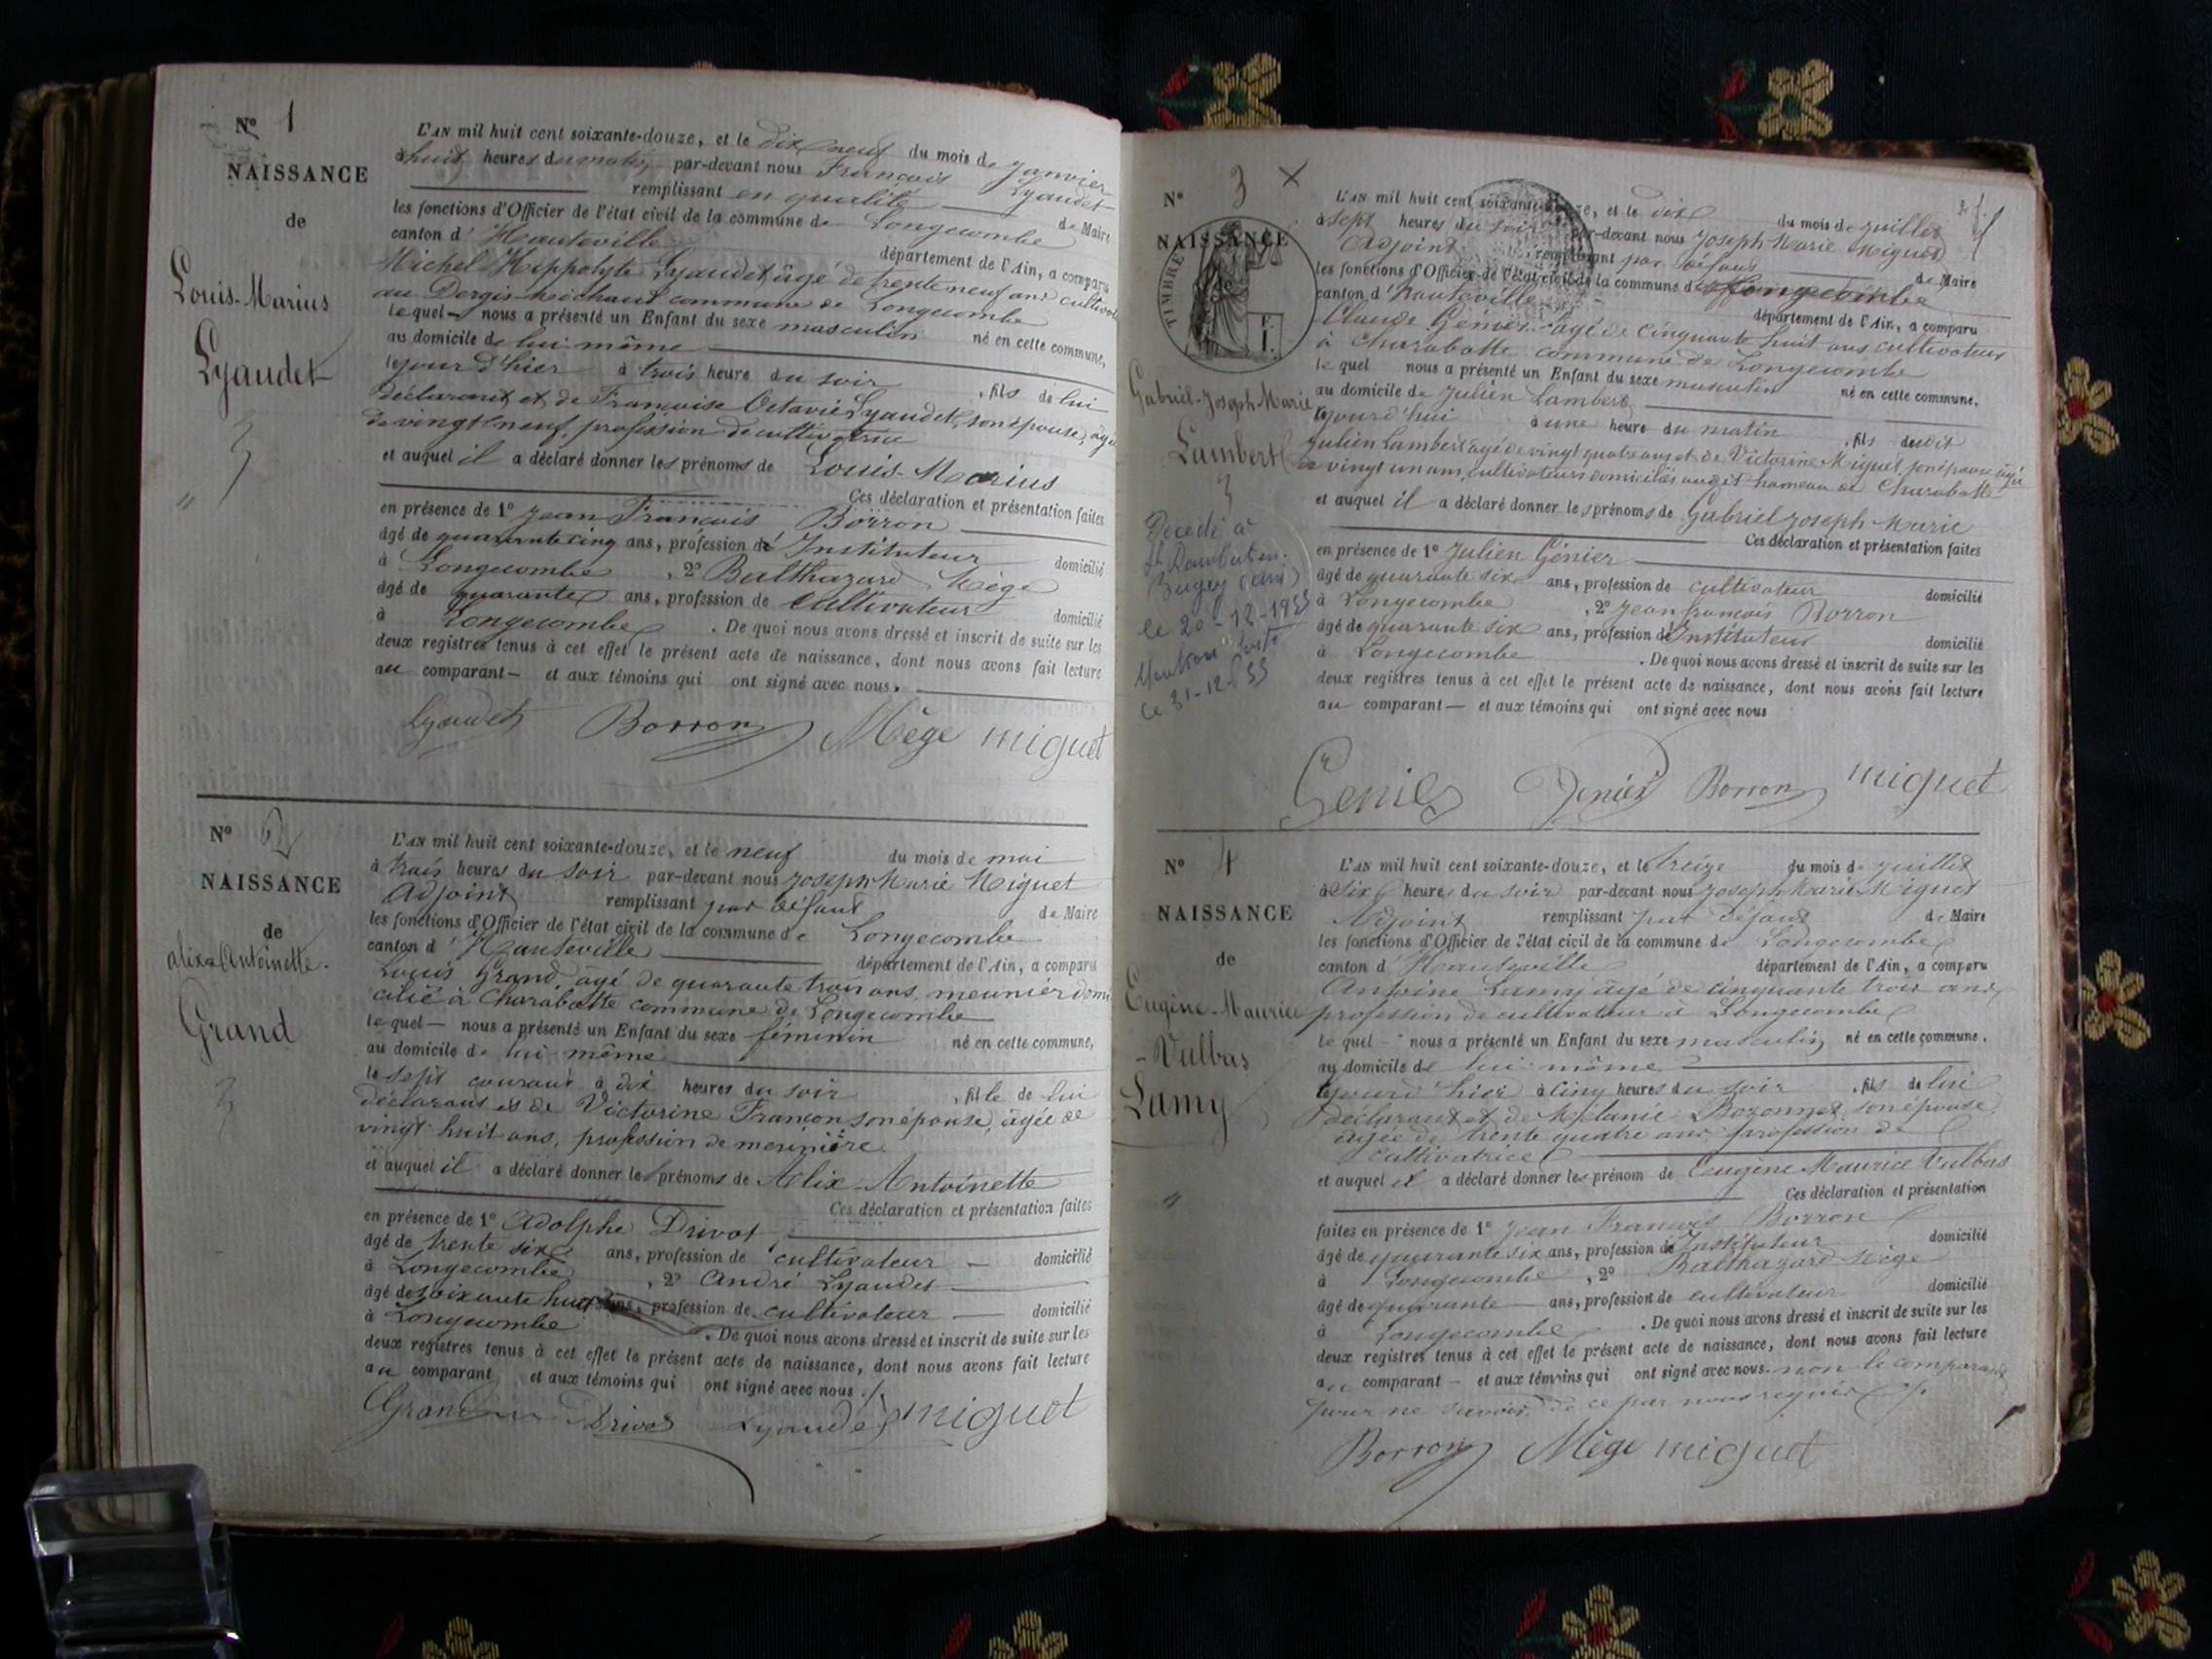 N° 1
NAISSANCE
de
Louis-Marius
Lyaudet
L'AN mil huit cent soixante-douze, et le dix neuf du mois de Janvier
à huit heures du matin, par-devant nous François Lyaudet
remplissant en qualité de Maire
les fonctions d'Officier de l'état civil de la commune de Longecombe
canton d'Hauteville département de l'Ain, a comparu
Michel Hippolyte Lyaudet âgé de trente neuf ans cultivat
au commune de Longecombe
lequel nous a présenté un Enfant du sexe masculin né en cette commune,
au domicile de lui même
le jour d'hier à trois heure du soir, fils de lui
déclarant et de Françoise Octavie Lyaudet, son épouse, âgée
de vingt neuf, profession de cultivatrice
et auquel il a déclaré donner les prénoms de Louis-Marius
Ces déclaration et présentation faites
en présence de 1° Jean François Borron
âgé de quarante cinq ans, profession d'Instituteur domicilié
à Longecombe, 2° Balthazard Mège
âgé de quarante ans, profession de cultivateur domicilié
à Longecombe. De quoi nous avons dressé et inscrit de suite sur les
deux registres tenus à cet effet le présent acte de naissance, dont nous avons fait lecture
au comparant et aux témoins qui ont signé avec nous.
Lyaudet Borron Mège miguet
N° 2
NAISSANCE
de
Alix-Antoinette.
Grand
L'AN mil huit cent soixante-douze, et le neuf du mois de mai
à trois heures du soir par-devant nous Joseph Marie Miguet
Adjoint remplissant par défaut de Maire
les fonctions d'Officier de l'état civil de la commune de Longecombe
canton d'Hauteville département de l'Ain, a comparu
Louis Grand, âgé de quarante trois ans, meunier domi
cilié à Charabotte commune de Longecombe
lequel nous a présenté un Enfant du sexe féminin né en cette commune,
au domicile de lui même
le sept courant à dix heures du soir, fille de lui
déclarant et de Victorine Françon son épouse, âgée de
vingt huit ans, profession de meunière
et auquel il a déclaré donner les prénoms de Alix-Antoinette
Ces déclaration et présentation faites
en présence de 1° Adolphe Drivot
âgé de trente six ans, profession de cultivateur domicilié
à Longecombe, 2° André Lyaudet
âgé de soixante huit ans, profession de cultivateur domicilié
à Longecombe. De quoi nous avons dressé et inscrit de suite sur les
deux registres tenus à cet effet le présent acte de naissance, dont nous avons fait lecture
au comparant et aux témoins qui ont signé avec nous.
Grand Drivot Lyaudet miguet
N° 3
NAISSANCE
de
TIMBRE
Gabriel-Joseph-Marie
Lambert
Décédé à
St Rambert en
Bugey (Ain)
le 20-12-1955
ce 21-12-55
L'AN mil huit cent soixante-douze, et le dix du mois de juillet
à sept heures du soir par-devant nous Joseph Marie Miguet
Adjoint remplissant par défaut de Maire
les fonctions d'Officier de l'état civil de la commune de Longecombe
canton d'Hauteville département de l'Ain, a comparu
Claude Génier âgé de cinquante huit ans cultivateur
à Charabotte commune de Longecombe
lequel nous a présenté un Enfant du sexe masculin né en cette commune.
au domicile de Julien Lambert
le jourd'hui à une heure du matin, fils dudit
Julien Lambert âgé de vingt quatre ans et de Victorine Miguet, son épouse âgée
de vingt un ans, cultivateurs domiciliés audit hameau de Charabotte
et auquel il a déclaré donner les prénoms de Gabriel Joseph Marie
Ces déclaration et présentation faites
en présence de 1° Julien Génier
âgé de quarante six ans, profession de cultivateur domicilié
à Longecombe, 2° Jean François Borron
âgé de quarante six ans, profession d'Instituteur domicilié
à Longecombe. De quoi nous avons dressé et inscrit de suite sur les
deux registres tenus à cet effet le présent acte de naissance, dont nous avons fait lecture
au comparant et aux témoins qui ont signé avec nous
Genier Genier Borron miguet
N° 4
NAISSANCE
de
Eugène-Maurice
-Vulbas
Lamy
L'AN mil huit cent soixante-douze, et le treize du mois de juillet
à six heure du soir par-devant nous Joseph Marie Miguet
Adjoint remplissant par défaut de Maire
les fonctions d'Officier de l'état civil de la commune de Longecombe
canton d'Hauteville département de l'Ain, a comparu
Antoine Lamy âgé de cinquante trois ans,
profession de cultivateur à Longecombe
lequel nous a présenté un Enfant du sexe masculin, né en cette commune.
au domicile de lui même
le jour d'hier à cinq heures du soir, fils de lui
déclarant et de Mélanie Bozonnet, son épouse,
âgée de trente quatre ans profession de
cultivatrice
et auquel il a déclaré donner les prénom de Eugène Maurice Vulbas
Ces déclaration et présentation
faites en présence de 1° Jean François Borron
âgé de quarante six ans, profession d'Instituteur domicilié
à Longecombe, 2° Balthazard Mège
âgé de quarante ans, profession de cultivateur domicilié
à Longecombe. De quoi nous avons dressé et inscrit de suite sur les
deux registres tenus à cet effet le présent acte de naissance, dont nous avons fait lecture
au comparant et aux témoins qui ont signé avec nous. non le comparant
pour ne savoir de ce par nous requis
Borron Mège miguet